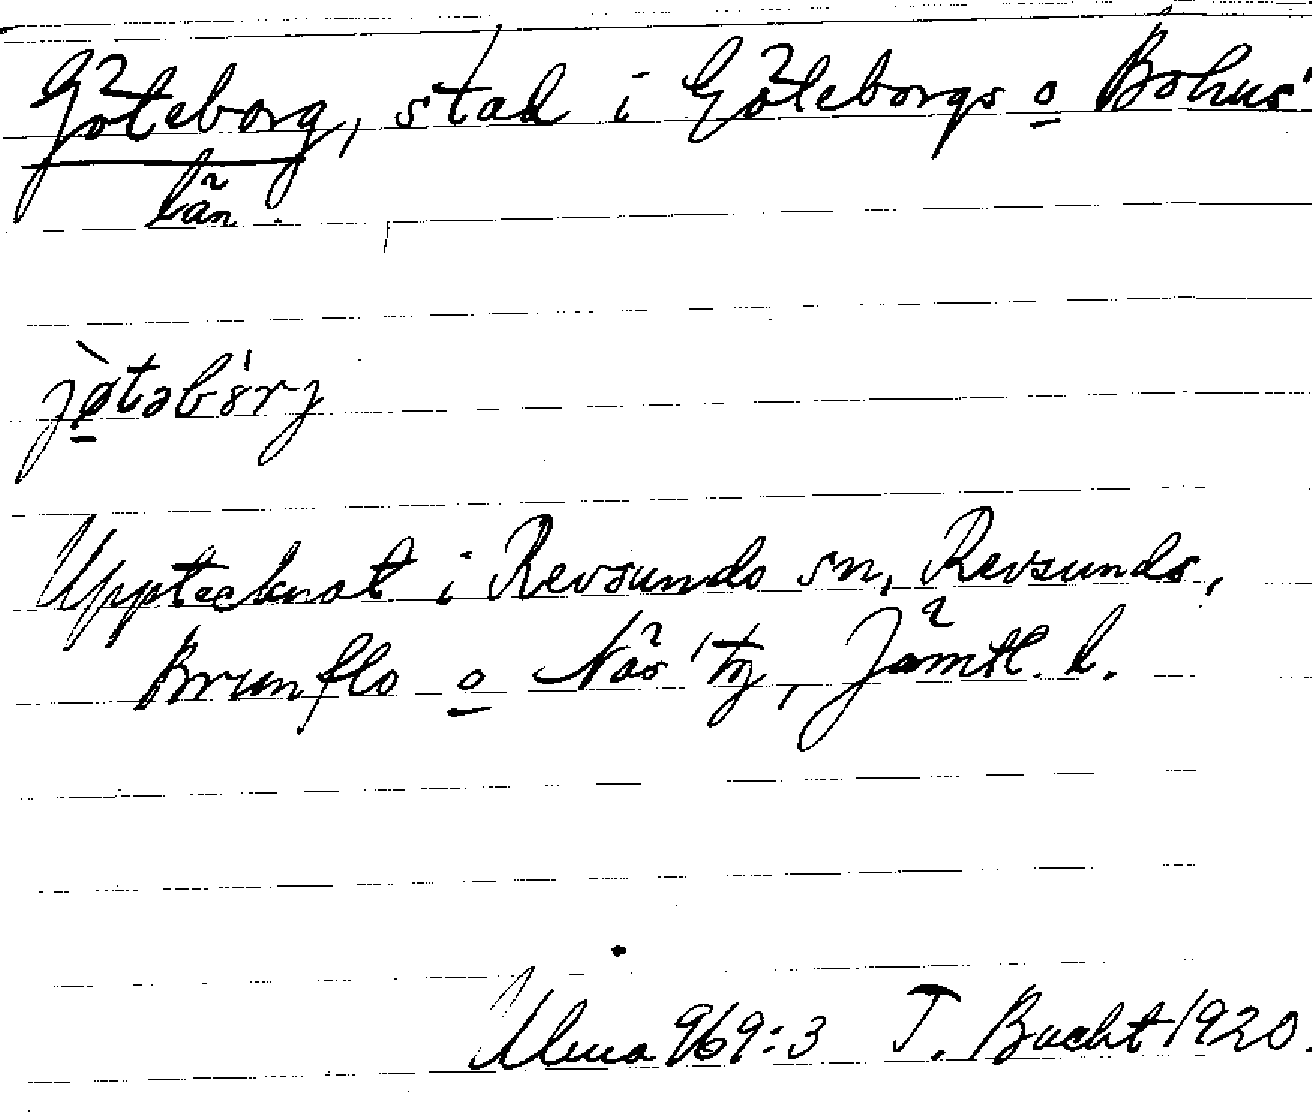 Göteborg, stad i Göteborgs o Bohus
län.
jø̀təbórj
Upptecknat i Revsunds sn, Revsunds,
Brunflo o Näs' tg, Jämtl. l.
Ulma 969:3 T. Bucht 1920.